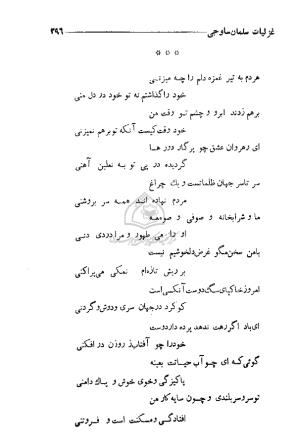 غزلیات سلمان ساوجی ۳۹۶
* * *
هر دم به تیر غمزه دلم را چه میزنی
خود را گذاشتم نه تو خود در دل منی
برهم زدند ابرو و چشم تو وقت من
خود وقت کیست آنکه تو برهم نمیزنی
ای رهروان عشق چو پرگار دور ها
گردیده در پی تو به نعلین آهنی
سر تاسر جهان ظلماتست و یك چراغ
مردم نهاده اند همه سر بروشنی
ما و شرابخانه و صوفی و صومعه
او را می طهور و مرا دردی دنی
بامن سخن مگو غرض دلخوشیم نیست
بر ریش تازه ام نمکی می پراکنی
امروز خاکپای سگ دوست آنکسی است
کو کرد در جهان سری و دوش و گردنی
ای باد اگر رهت ندهد پرده دار دوست
خود را چو آفتاب ز روزن در افکنی
گوئی که ای چو آب حیاتت بعینه
پاکیزگی و خوی خوش و پاك دامنی
تو سرو سربلندی و چون سایه کار من
افتادگی و مسکنت است و فروتنی